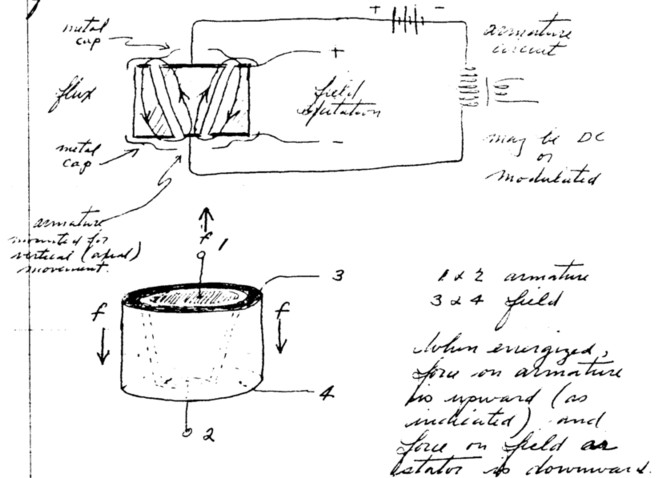 metal
cap
+ -
armature
circuit
+
flux
field
excitation
-
metal
cap
may be DC
or
modulated
armature
mounted for
vertical (axial)
movement.
f
1
3
f
f
4
2
1 & 2 armature
3 & 4 field
When energized,
force on armature
is upward (as
indicated) and
force on field or
stator is downward.